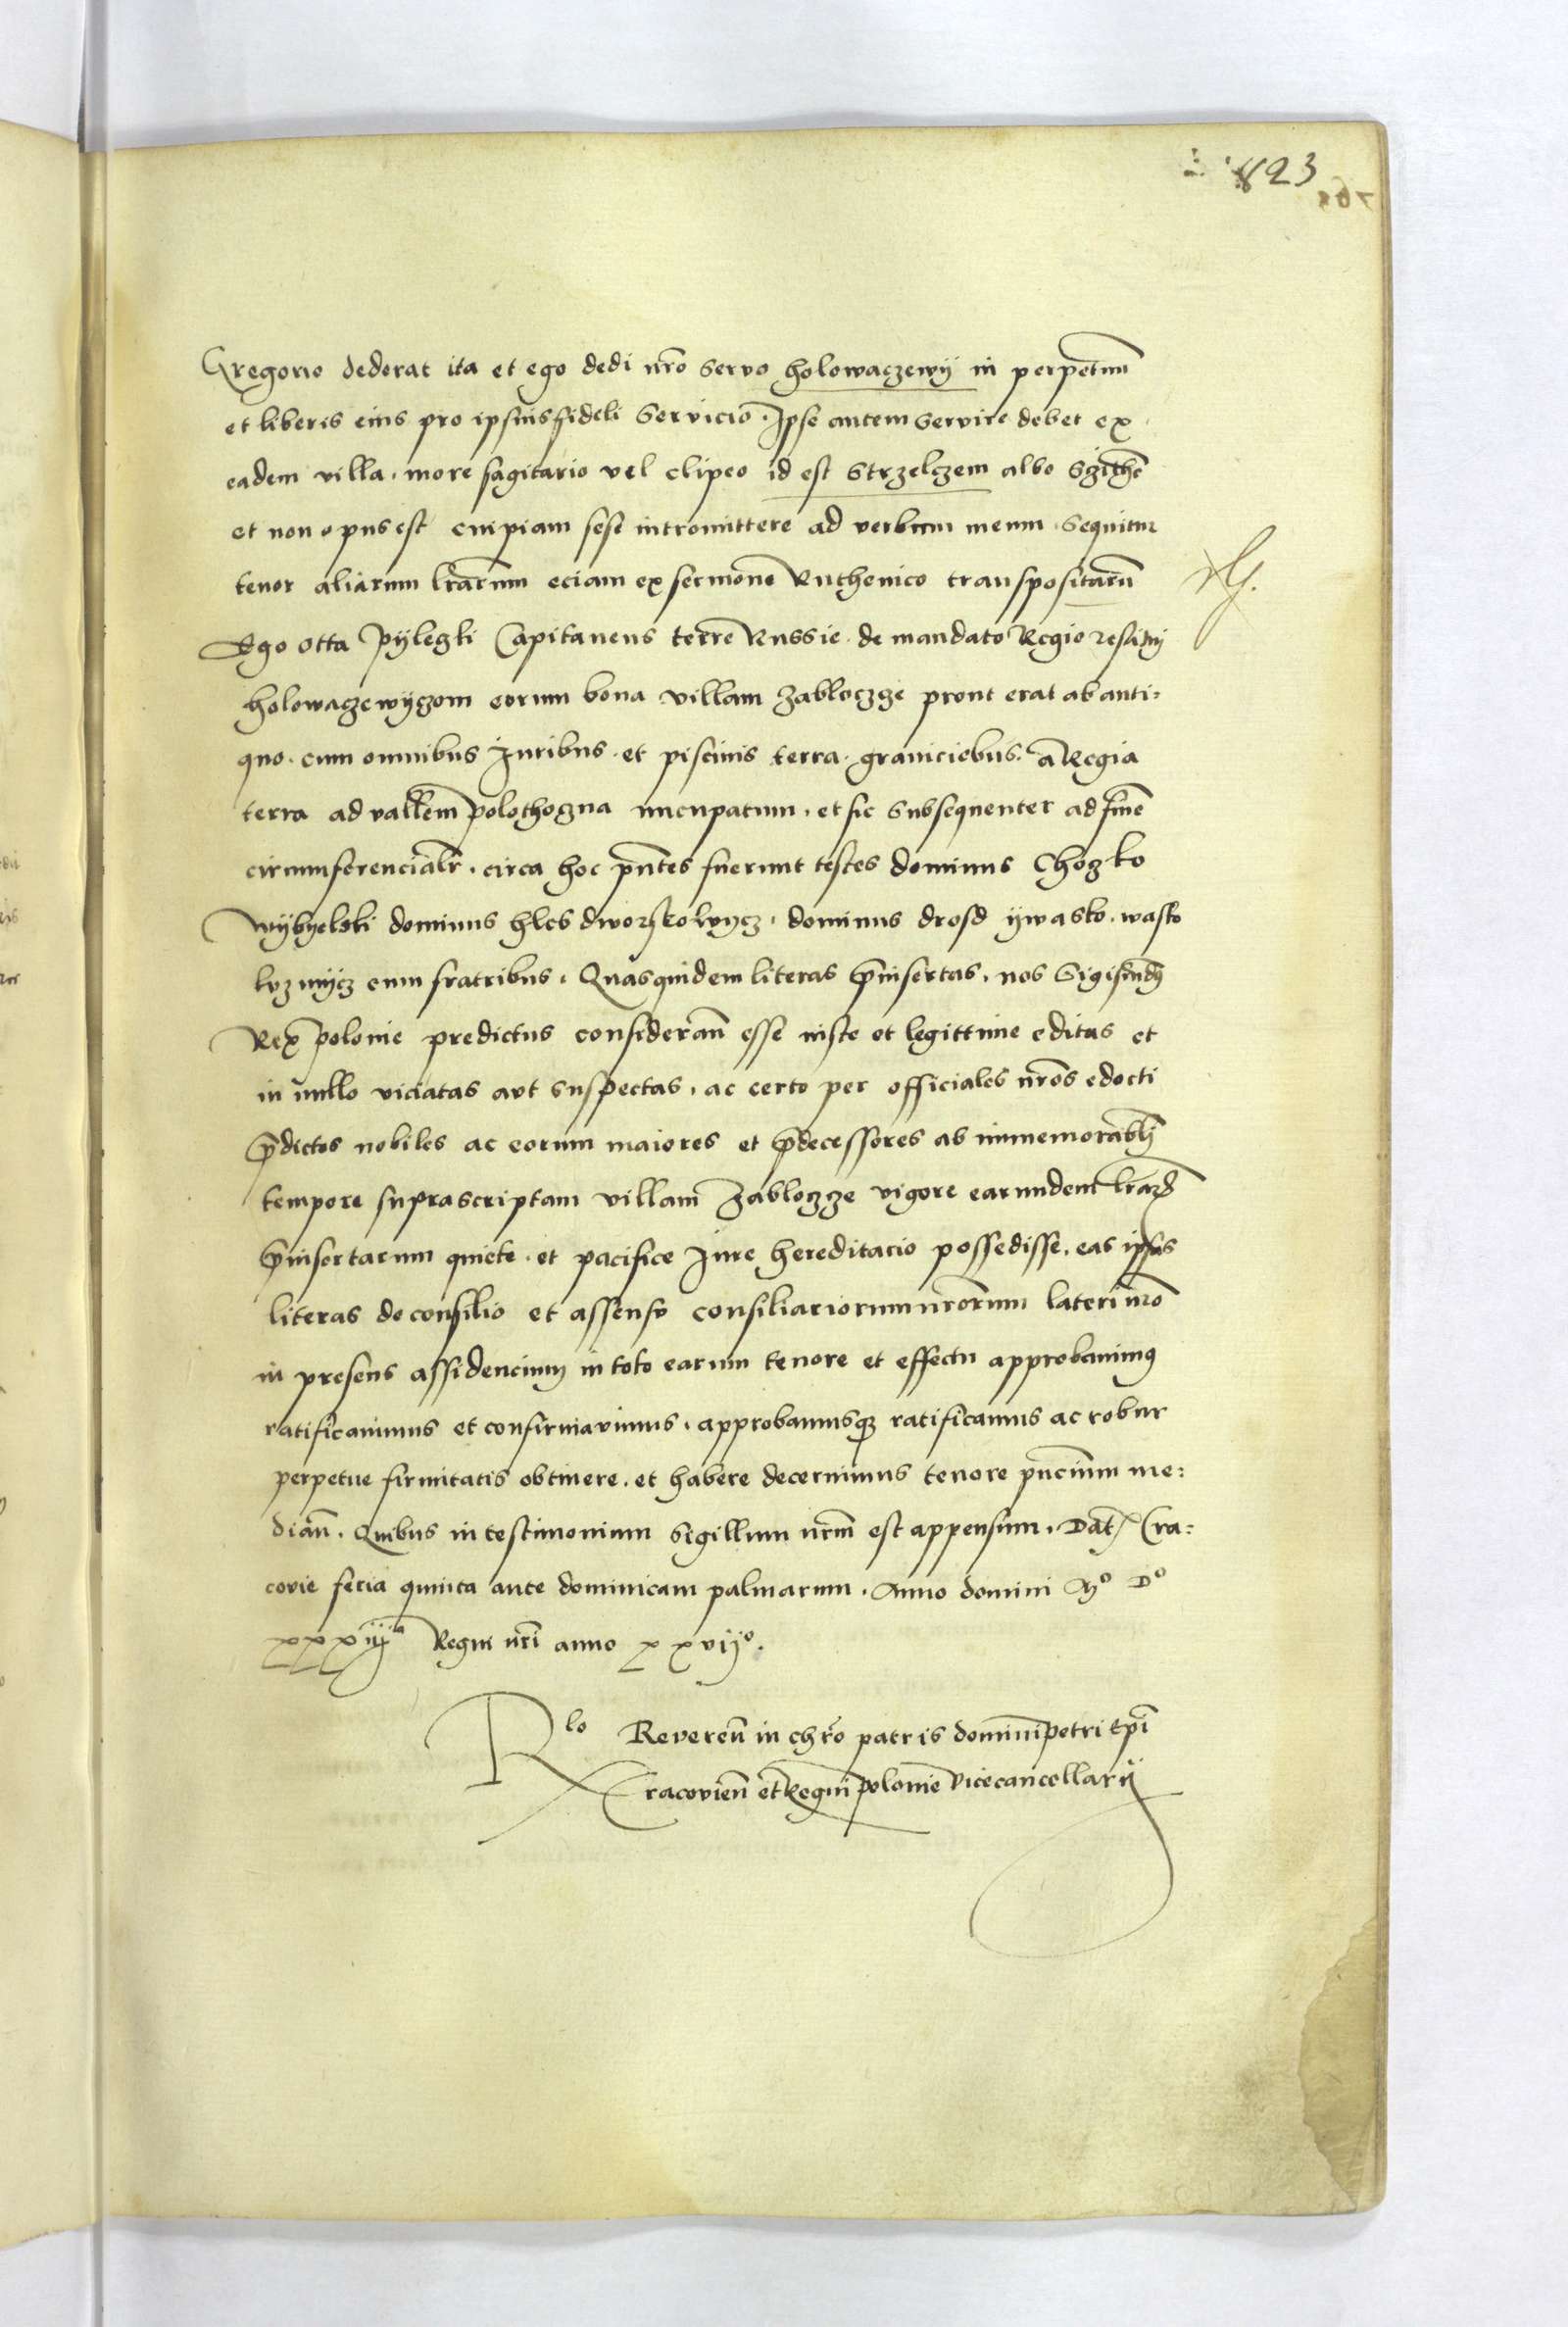 823
Gregorio dederat ita et ego dedi nro servo holowaczewÿ in perpetuum
et liberis eius pro ipsius fideli servicio. Ipse autem servire debet ex
eadem villa. more sagitario vel clipeo id est Strzelczem albo Sczithē
et non opus est cuipiam sese intromittere ad verbum meum. Sequitur
tenor aliarum lrarum eciam ex sermone Ruthenico transpositarū
Ego Otta Pÿleczki Capitaneus terre Russie. de mandato Regio
holowaczewÿczom eorum bona villam Zabloczge prout erat ab anti-
quo. cum omnibus Iuribus. et piscinis terra. graniciebus. a Regia
terra ad vallem polothozna nucupatum. et sic subsequenter ad finē
circumferencialr. circa hoc pntes fuerunt testes dominus Chozko
Wÿbÿelski dominus hleb dworzkolvycz. dominus drosd ÿwasko. wasko
kvzmÿcz cum fratribus. Quasquidem literas preinsertas. nos Sigismdus
Rex polonie predictus consideran esse iuste et legittime editas et
in nullo viciatas aut suspectas. ac certo per officiales nros edocti
pdictos nobiles ac eorum maiores et pdecessores ab immemorabli
tempore suprascriptam villam Zabloczge vigore earundem lrarū
pinsertarum quiete. et pacifice Iure hereditario possedisse. eas ipsas
literas de consilio et assensu consiliariorum nrorum lateri nro
in presens assidencium in toto earum tenore et effectu approbavimus
ratificavimus et confirmavimus. approbamusque ratificamus ac robur
perpetue firmitatis obtinere. et habere decernimus tenore pncium me-
dian. Quibus in testimonium Sigillum nrm est appensum. Dat Cra-
covie feria quinta ante dominicam palmarum. Anno domini Mº Dº
xxxiijº Regni nri anno xxvijº.
Rlo Reveren in chro patris domini petri Epi
Cracovien et Regni polonie Vicecancellarÿ